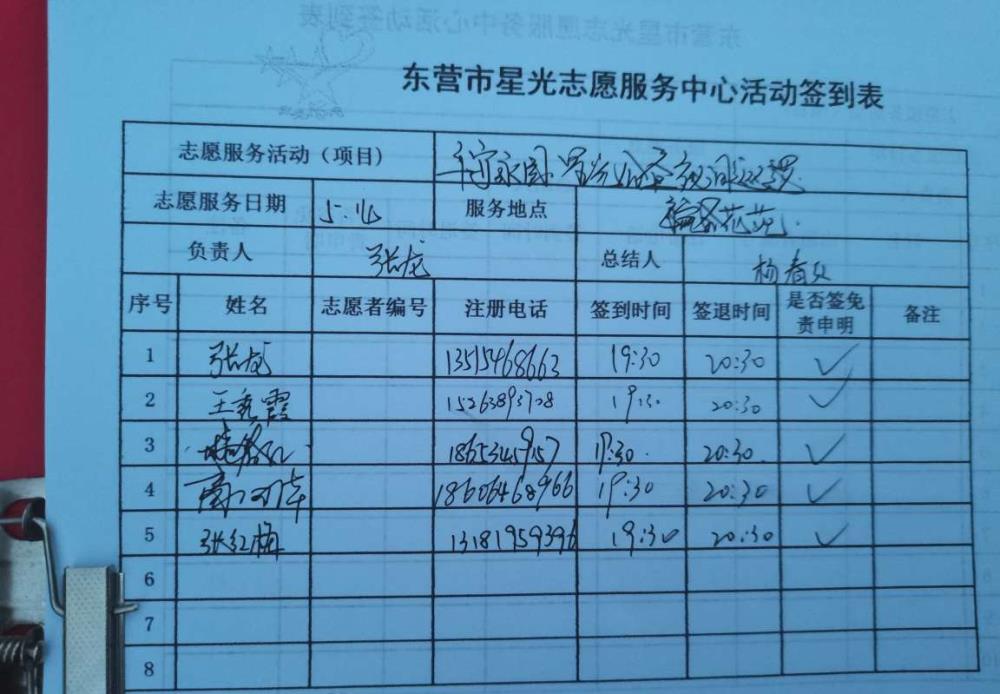 东营市星光志愿服务中心活动签到表
志愿服务活动（项目）
志愿服务日期 5.16 服务地点
负责人 张龙 总结人 杨春
序号 姓名 志愿者编号 注册电话 签到时间 签退时间 是否签免责申明 备注
1 张龙 13515468663 19:30 20:30 ✓
2 王秀霞 15263893728 19:30 20:30 ✓
3 18653459157 19:30 20:30 ✓
4 18606468966 19:30 20:30 ✓
5 张红梅 13181959396 19:30 20:30 ✓
6
7
8